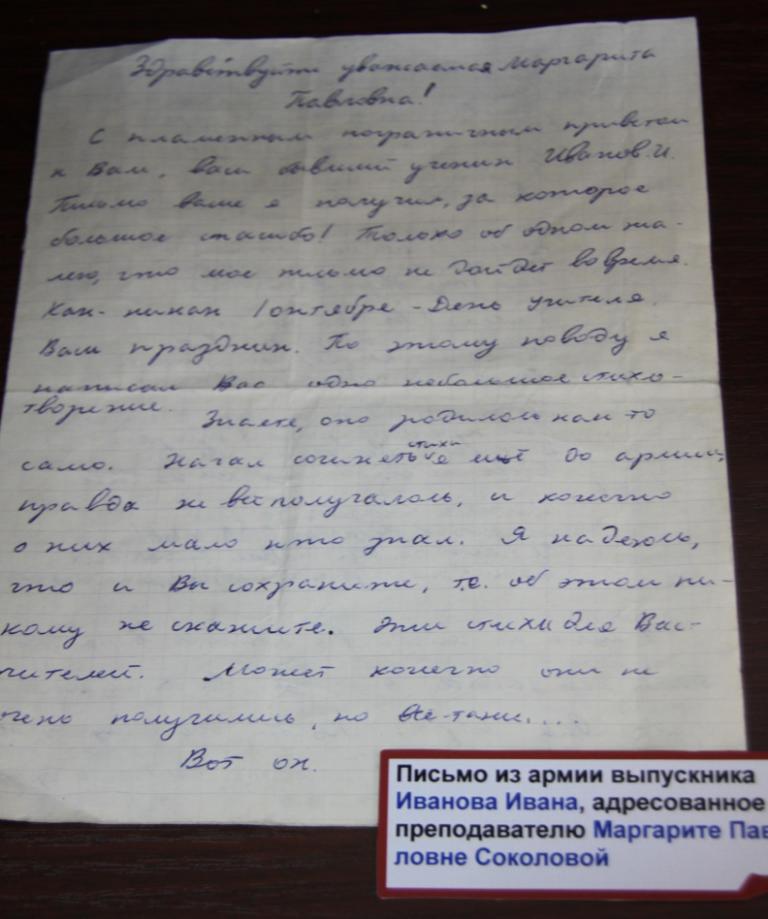 Здравствуйте уважаемая Маргарита
Павловна!
С пламенным пограничным приветом
к Вам, ваш бывший ученик Иванов.И.
Письмо ваше я получил, за которое
большое спасибо! Только об одном жа-
лею, что мое письмо не дойдет во время.
Как-никак 1 октября - День учителя.
Ваш праздник. По этому поводу я
написал Вас одно небольшое стихо-
творение.
Знаете, оно родилось как то
само. Начал сочинять стихи я ещё до армии,
правда не все получалось, и конечно
о них мало кто знал. Я надеюсь,
что и Вы сохраните, т.е. об этом ни-
кому не скажите. Эти стихи для Вас-
учителей. Может конечно они не
очень получились, но все-таки....
Вот он.
Письмо из армии выпускника
Иванова Ивана, адресованное
преподавателю Маргарите Пав
ловне Соколовой